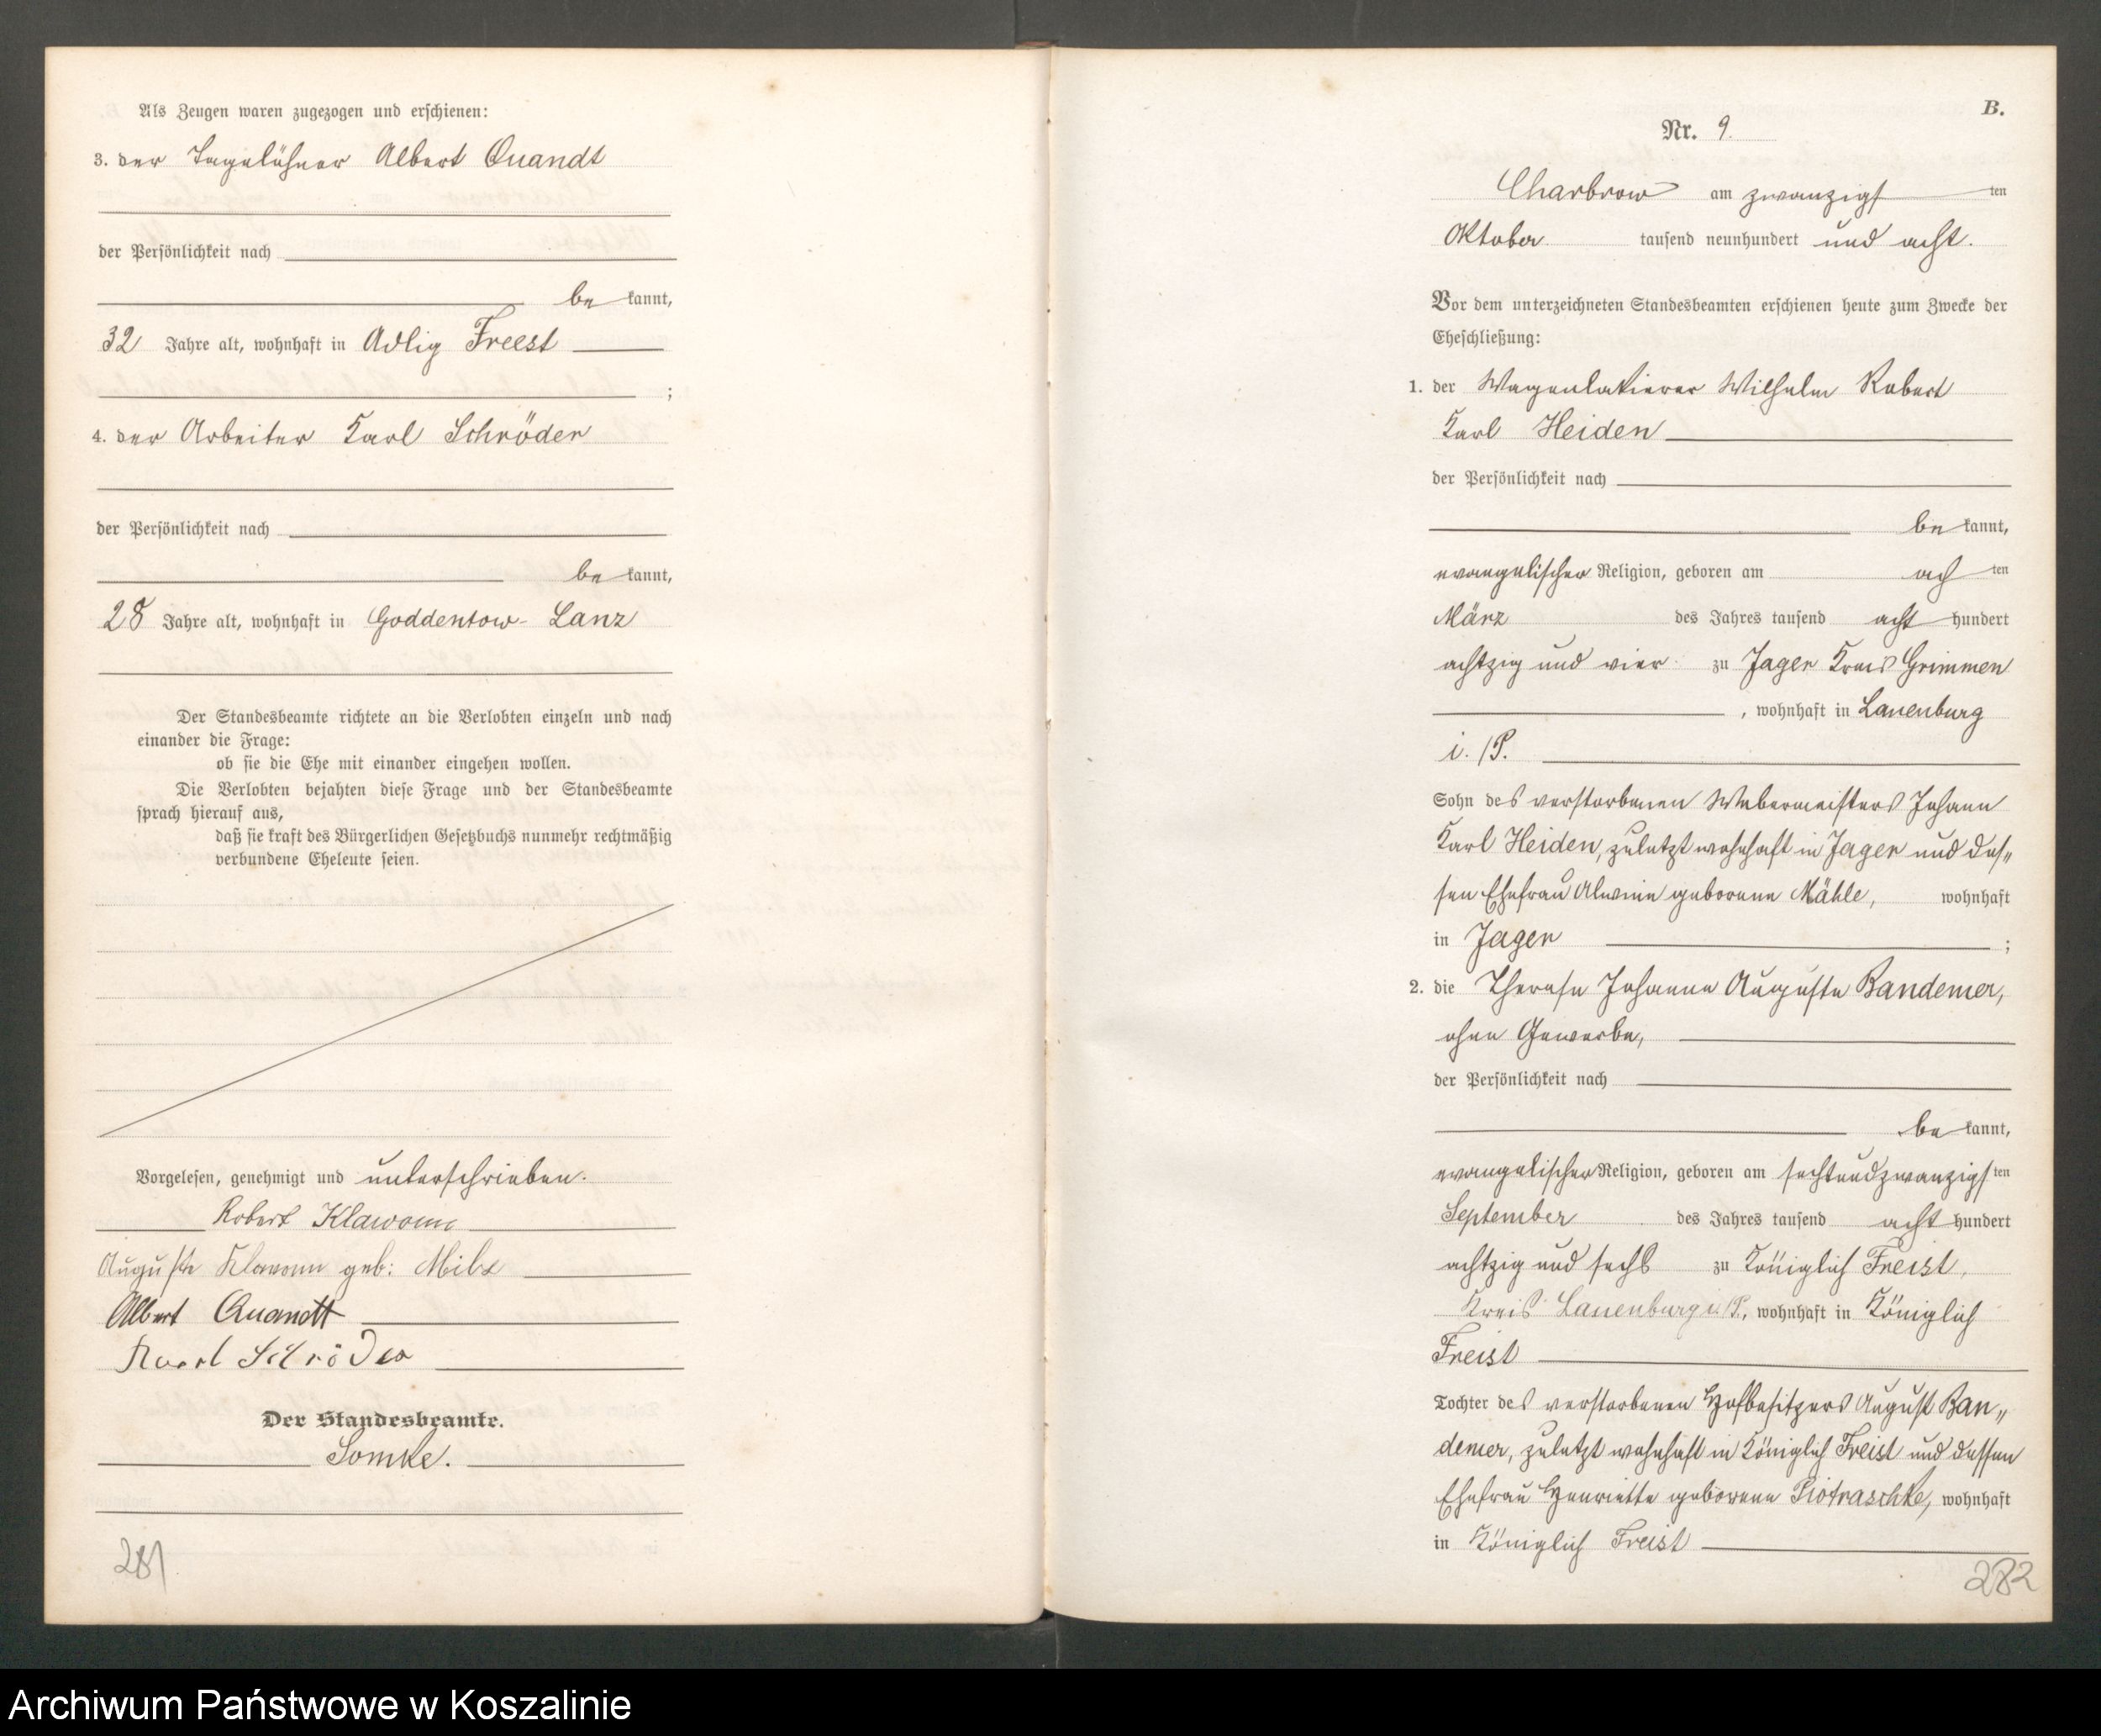 Als Zeugen waren zugezogen und erschienen:
3. der Tagelöhner Albert Quandt
der Persönlichkeit nach
be kannt,
32 Jahre alt, wohnhaft in Adlig Freest
;
4. der Arbeiter Karl Schröder
der Persönlichkeit nach
be kannt,
28 Jahre alt, wohnhaft in Goddentow-Lanz
Der Standesbeamte richtete an die Verlobten einzeln und nach
einander die Frage:
ob sie die Ehe mit einander eingehen wollen.
Die Verlobten bejahten diese Frage und der Standesbeamte
sprach hierauf aus,
daß sie kraft des Bürgerlichen Gesetzbuchs nunmehr rechtmäßig
verbundene Eheleute seien.
Vorgelesen, genehmigt und unterschrieben.
Robert Klawonn
Auguste Klawonn geb: Milz
Albert Quandt
Karl Schröder
Der Standesbeamte.
Somke.
281
B.
Nr. 9.
Charbrow am zwanzigsten
Oktober tausend neunhundert und acht.
Vor dem unterzeichneten Standesbeamten erschienen heute zum Zwecke der
Eheschließung:
1. der Wagenlakierer Wilhelm Robert
Karl Heiden
der Persönlichkeit nach
be kannt,
evangelischer Religion, geboren am ach ten
März des Jahres tausend acht hundert
achtzig und vier zu Jager Kreis Grimmen
, wohnhaft in Lauenburg
i. /P.
Sohn des verstorbenen Webermeisters Johann
Karl Heiden, zuletzt wohnhaft in Jager und des„
sen Ehefrau Alwine geborene Mähle, wohnhaft
in Jager ;
2. die Therese Johanne Auguste Bandemer,
ohne Gewerbe,
der Persönlichkeit nach
be kannt,
evangelischer Religion, geboren am sechsundzwanzigsten
September des Jahres tausend acht hundert
achtzig und sechs zu Königlich Freist,
Kreis Lauenburg i/P., wohnhaft in Königlich
Freist
Tochter des verstorbenen Hofbesitzers August Ban„
demer, zuletzt wohnhaft in Königlich Freist und dessen
Ehefrau Henriette geborene Piotraschke, wohnhaft
in Königlich Freist
282
Archiwum Państwowe w Koszalinie